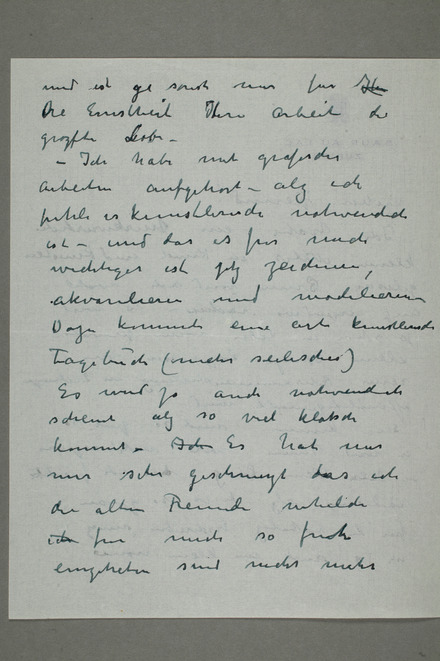 und est ge sonst nur fur
Die Einstheit Ihre arbeit die
groszte Lobe –
– Ich habe mit grafisches
arbeiten aufgehort – alz ich
fuhle es kunstlerische notwendich
ist – und das es fur mich
wichtiger ist jtz zeichnen,
akvarilieren und modelieren
Dazu kommt eine art kunstlerische
Tagebuch (under seelisches)
Es wird ja auch notwendich
scheint alz so viel klatsch
kommt – Es hat mir
nur sehr geschmerzt das ich
die alten Freunde
fur mich so
eingetreten sind nicht mehr